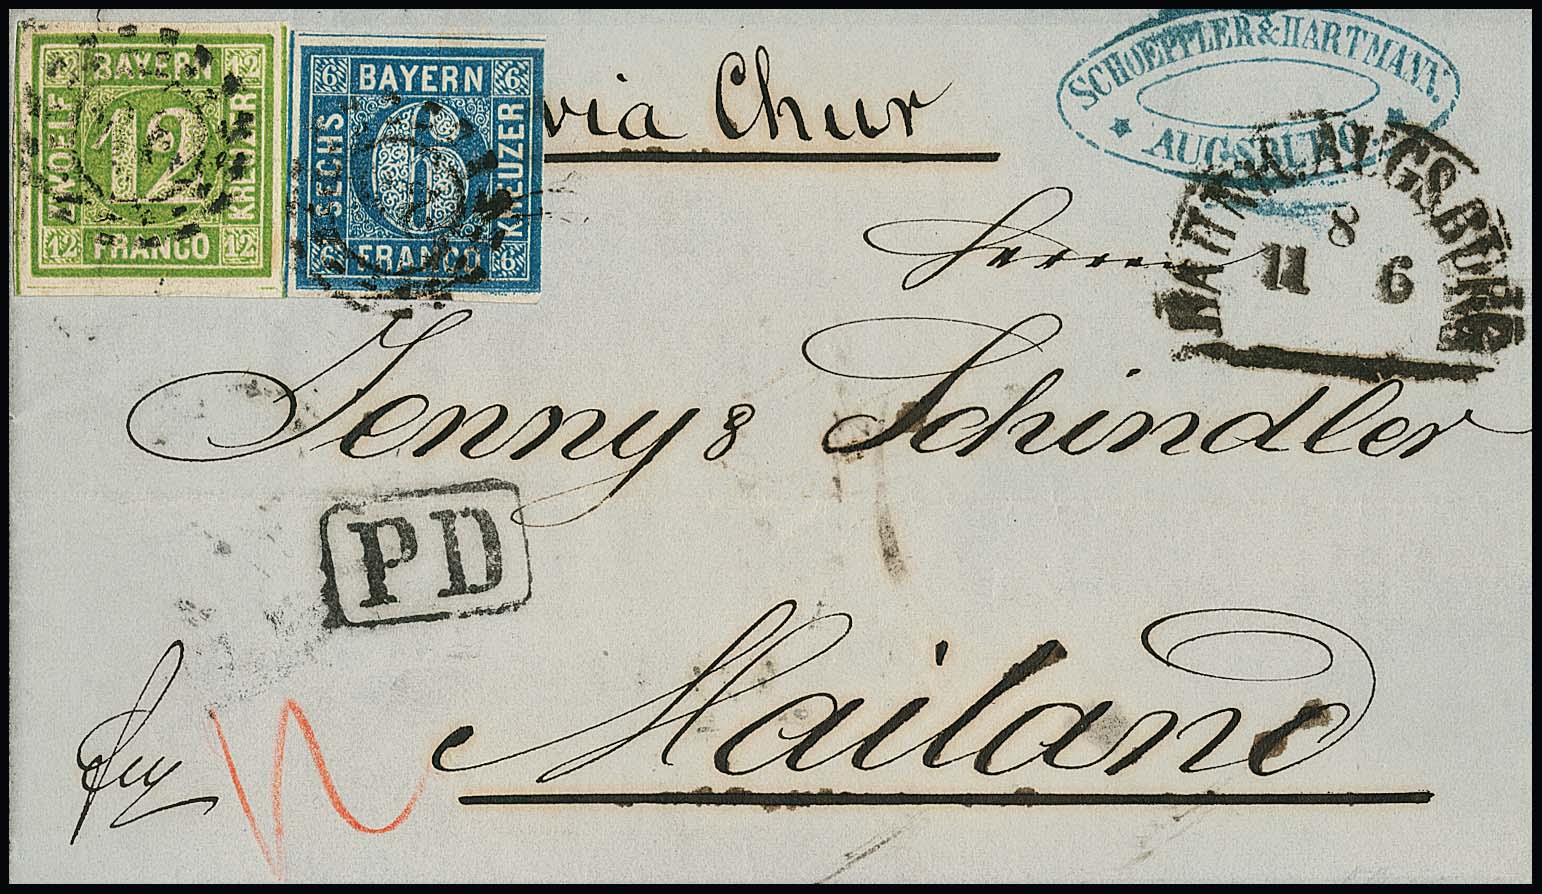 12 BAYERN 12
ZWÖLF 12 KREUZER
12 FRANCO 12
6 BAYERN 6
SECHS 6 KREUZER
6 FRANCO 6
via Chur
SCHOEPPLER & HARTMANN.
AUGSBURG
AUGSBURG
8
11 6
Herrn
Jenny & Schindler
PD
Mailand